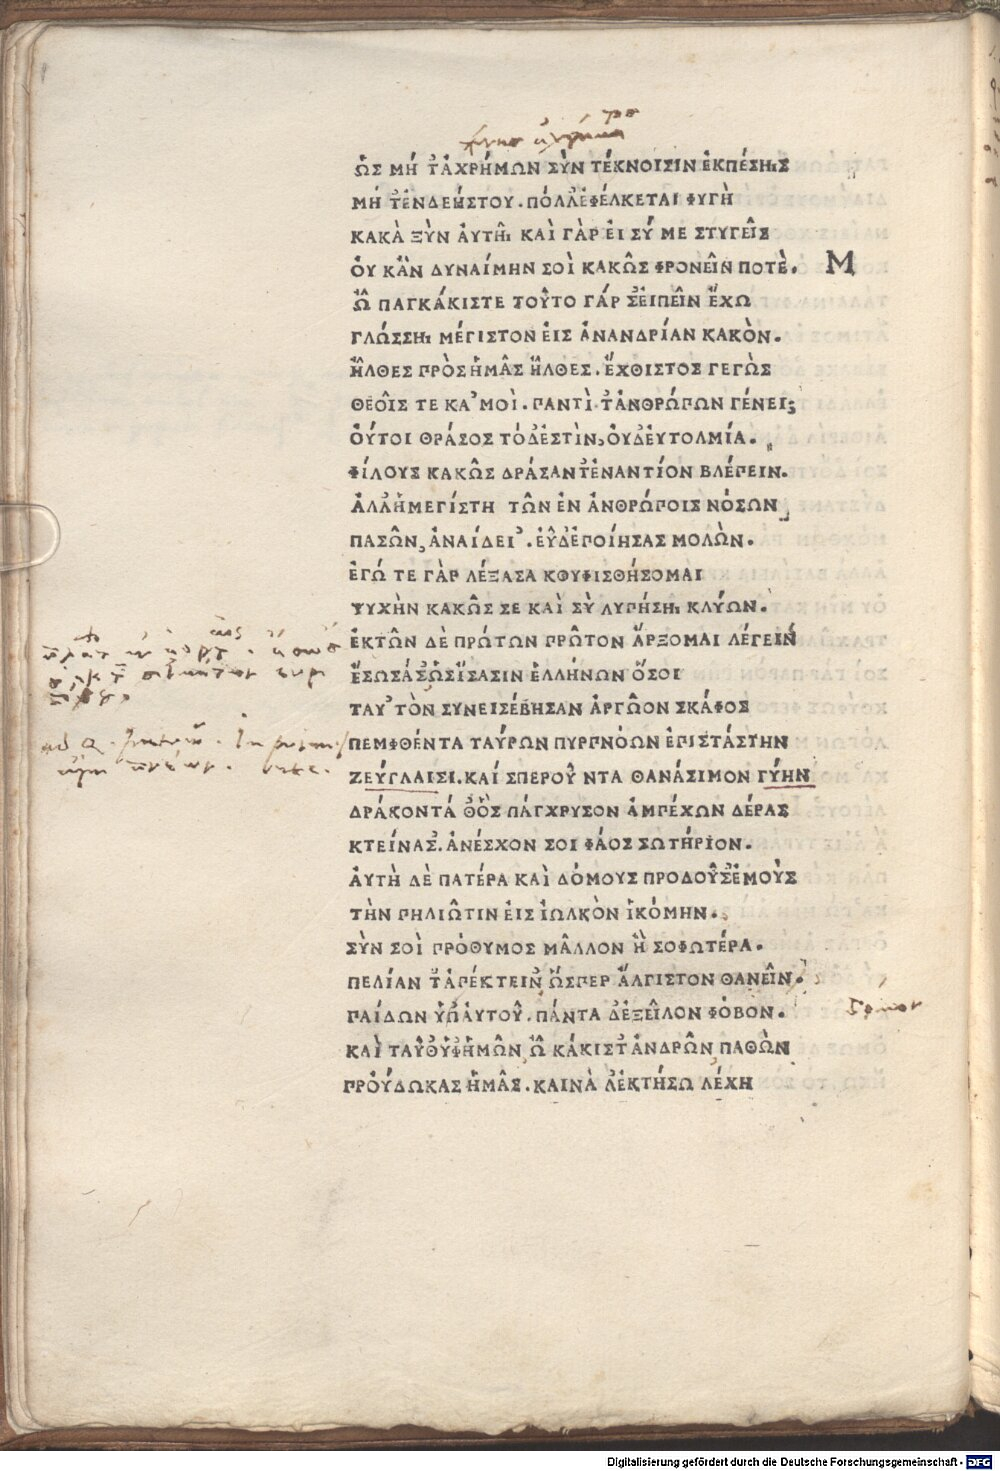 ὩΣ ΜΉ Τ᾽ἈΧΡΉΜΩΝ ΣῪΝ ΤΈΚΝΟΙΣΙΝ ἘΚΠΈΣΗΙΣ
ΜΉ Τ᾽ἘΝΔΕΉΣΤΟΥ. ΠΌΛΛ᾽ἘΦΈΛΚΕΤΑΙ ΦΥΓῊ
ΚΑΚᾺ ΞῪΝ ἈΥΤΗ͂Ι ΚΑῚ ΓᾺΡ ἘΙ ΣΎ ΜΕ ΣΤΥΓΕΙ͂Σ
ὈΥ ΚἊΝ ΔΥΝΑΊΜΗΝ ΣΟῚ ΚΑΚΩ͂Σ ΦΡΟΝΕΙ͂Ν ΠΟΤῈ. Μ
Ὦ ΠΑΓΚΆΚΙΣΤΕ ΤΟΥ͂ΤΟ ΓΆΡ Σ᾽ἘΙΠΕΙ͂Ν ἜΧΩ
ΓΛΏΣΣΗΙ ΜΈΓΙΣΤΟΝ ἘΙΣ ἈΝΑΝΔΡΊΑΝ ΚΑΚῸΝ.
ἮΛΘΕΣ ΠΡῸΣ ἩΜΑ͂Σ ἮΛΘΕΣ. ἜΧΘΙΣΤΟΣ ΓΕΓῺΣ
ΘΕΟΙ͂Σ ΤΕ ΚΑ᾽ΜΟῚ. ΠΑΝΤῚ Τ᾽ἈΝΘΡΏΠΩΝ ΓΈΝΕΙ;
ὈΎΤΟΙ ΘΡΆΣΟΣ ΤΌΔ᾽ἘΣΤῚΝ, ὈΥΔ᾽ἘΥΤΟΛΜΊΑ.
ΦΊΛΟΥΣ ΚΑΚΩ͂Σ ΔΡΆΣΑΝΤ᾽ἘΝΑΝΤΊΟΝ ΒΛΈΠΕΙΝ.
ἈΛΛ᾽Ἡ ΜΕΓΊΣΤΗ ΤΩ͂Ν ἘΝ ἈΝΘΡΏΠΟΙΣ ΝΌΣΩΝ
ΠΑΣΩ͂Ν, ἈΝΑΊΔΕΙ᾽. ἘΥ͂Δ᾽ἘΠΟΊΗΣΑΣ ΜΟΛῺΝ.
ἘΓΏ ΤΕ ΓᾺΡ ΛΈΞΑΣΑ ΚΟΥΦΙΣΘΉΣΟΜΑΙ
ΨΥΧῊΝ ΚΑΚΩ͂Σ ΣΕ ΚΑῚ ΣῪ ΛΥΠΉΣΗΙ ΚΛΎΩΝ.
ἘΚ ΤΩ͂Ν ΔῈ ΠΡΏΤΩΝ ΠΡΩ͂ΤΟΝ ἌΡΞΟΜΑΙ ΛΈΓΕΙΝ
ἜΣΩΣΆ Σ᾽ὩΣ ἼΣΑΣΙΝ ἙΛΛΉΝΩΝ ὍΣΟΙ
ΤΑΥ᾽ΤῸΝ ΣΥΝΕΙΣΈΒΗΣΑΝ ἈΡΓΩ͂ΟΝ ΣΚΆΦΟΣ
ΠΕΜΦΘΈΝΤΑ ΤΑΎΡΩΝ ΠΥΡΠΝΌΩΝ ἘΠΙΣΤΆΣΤΗΝ
ΖΕΎΓΛΑΙΣΙ. ΚΑΊ ΣΠΕΡΟΥ͂ΝΤΑ ΘΑΝΆΣΙΜΟΝ ΓΎΗΝ
ΔΡΆΚΟΝΤΆ Θ᾽ὋΣ ΠΆΓΧΡΥΣΟΝ ἈΜΠΈΧΩΝ ΔΈΡΑΣ
ΚΤΕΊΝΑΣ᾽. ἈΝΈΣΧΟΝ ΣΟΙ ΦΆΟΣ ΣΩΤΉΡΙΟΝ.
ἈΥΤῊ ΔῈ ΠΑΤΈΡΑ ΚΑῚ ΔΌΜΟΥΣ ΠΡΟΔΟΥ͂Σ᾽ἘΜΟῪΣ
ΤῊΝ ΠΗΛΙΩ͂ΤΙΝ ἘΙΣ ἸΩΛΚῸΝ ἹΚΌΜΗΝ.
ΣῪΝ ΣΟῚ ΠΡΌΘΥΜΟΣ ΜΑ͂ΛΛΟΝ Ἢ ΣΟΦΩΤΈΡΑ.
ΠΕΛΊΑΝ Τ᾽ἈΠΈΚΤΕΙΝ᾽ ὭΣΠΕΡ ἌΛΓΙΣΤΟΝ ΘΑΝΕΙ͂Ν.
ΠΑΊΔΩΝ ὙΠ᾽ΑΥΤΟΥ͂. ΠΆΝΤΑ Δ᾽ἘΞΕΙ͂ΛΟΝ ΦΌΒΟΝ.
ΚΑῚ ΤΑΥ͂Θ᾽ὙΦ᾽ἩΜΩ͂Ν Ὦ ΚΆΚΙΣΤ᾽ἈΝΔΡΩ͂Ν ΠΑΘῺΝ
ΠΡΟΎΔΩΚΑΣ ἩΜΑ͂Σ. ΚΑΙΝᾺ Δ᾽ἘΚΤΉΣΩ ΛΈΧΗ
Digitalisierung gefördert durch die Deutsche Forschungsgemeinschaft - DFG